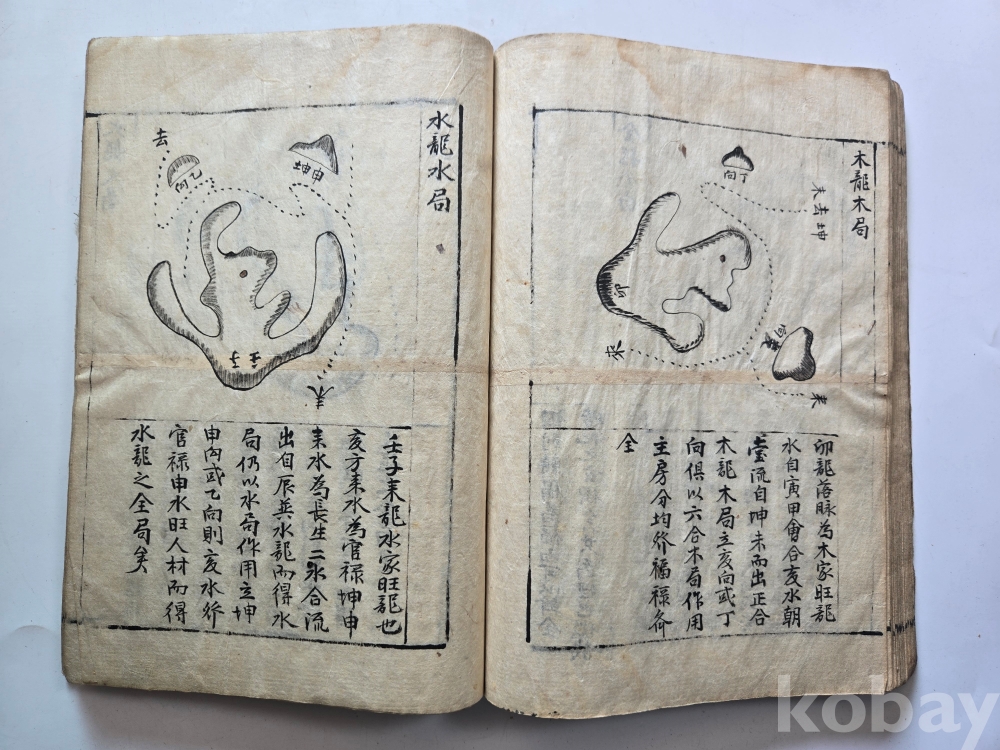 木龍木局
向丁
未去坤
卯
來
向亥
來
卯龍落脉為木家旺龍
水自寅甲會合亥水朝
堂流自坤未而出正合
木龍木局立亥向或丁
向俱以六合木局作用
主房分均發福祿齐
全
水龍水局
去
向乙
申坤
壬子
來
壬子來龍水家旺龍也
亥方來水為官祿坤申
來水為長生二水合流
出自辰巽水龍而得水
局仍以水局作用立坤
申向或乙向則亥水發
官祿申水旺人材而得
水龍之全局矣
kobay